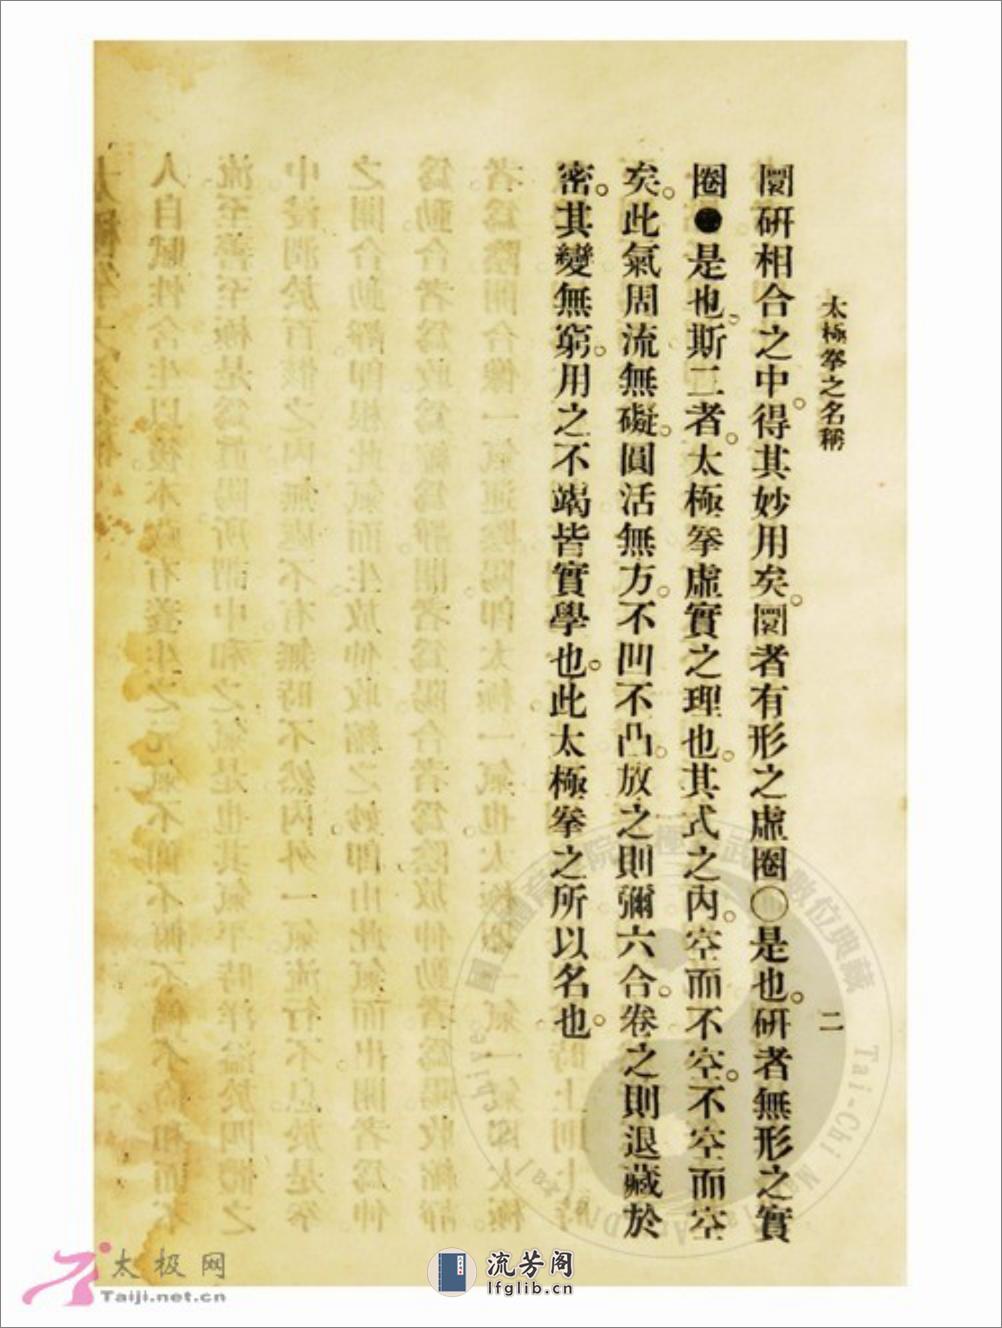 太極拳之名稱
二
圜研相合之中。得其妙用矣。圜者有形之虛圈〇是也。研者無形之實
圈●是也。斯二者。太極拳虛實之理也。其式之內。空而不空。不空而空
矣。此氣周流無礙。圓活無方。不凹不凸。放之則彌六合。卷之則退藏於
密。其變無窮。用之不竭皆實學也。此太極拳之所以名也。
太极网
Taiji.net.cn
流芳阁
lfglib.cn